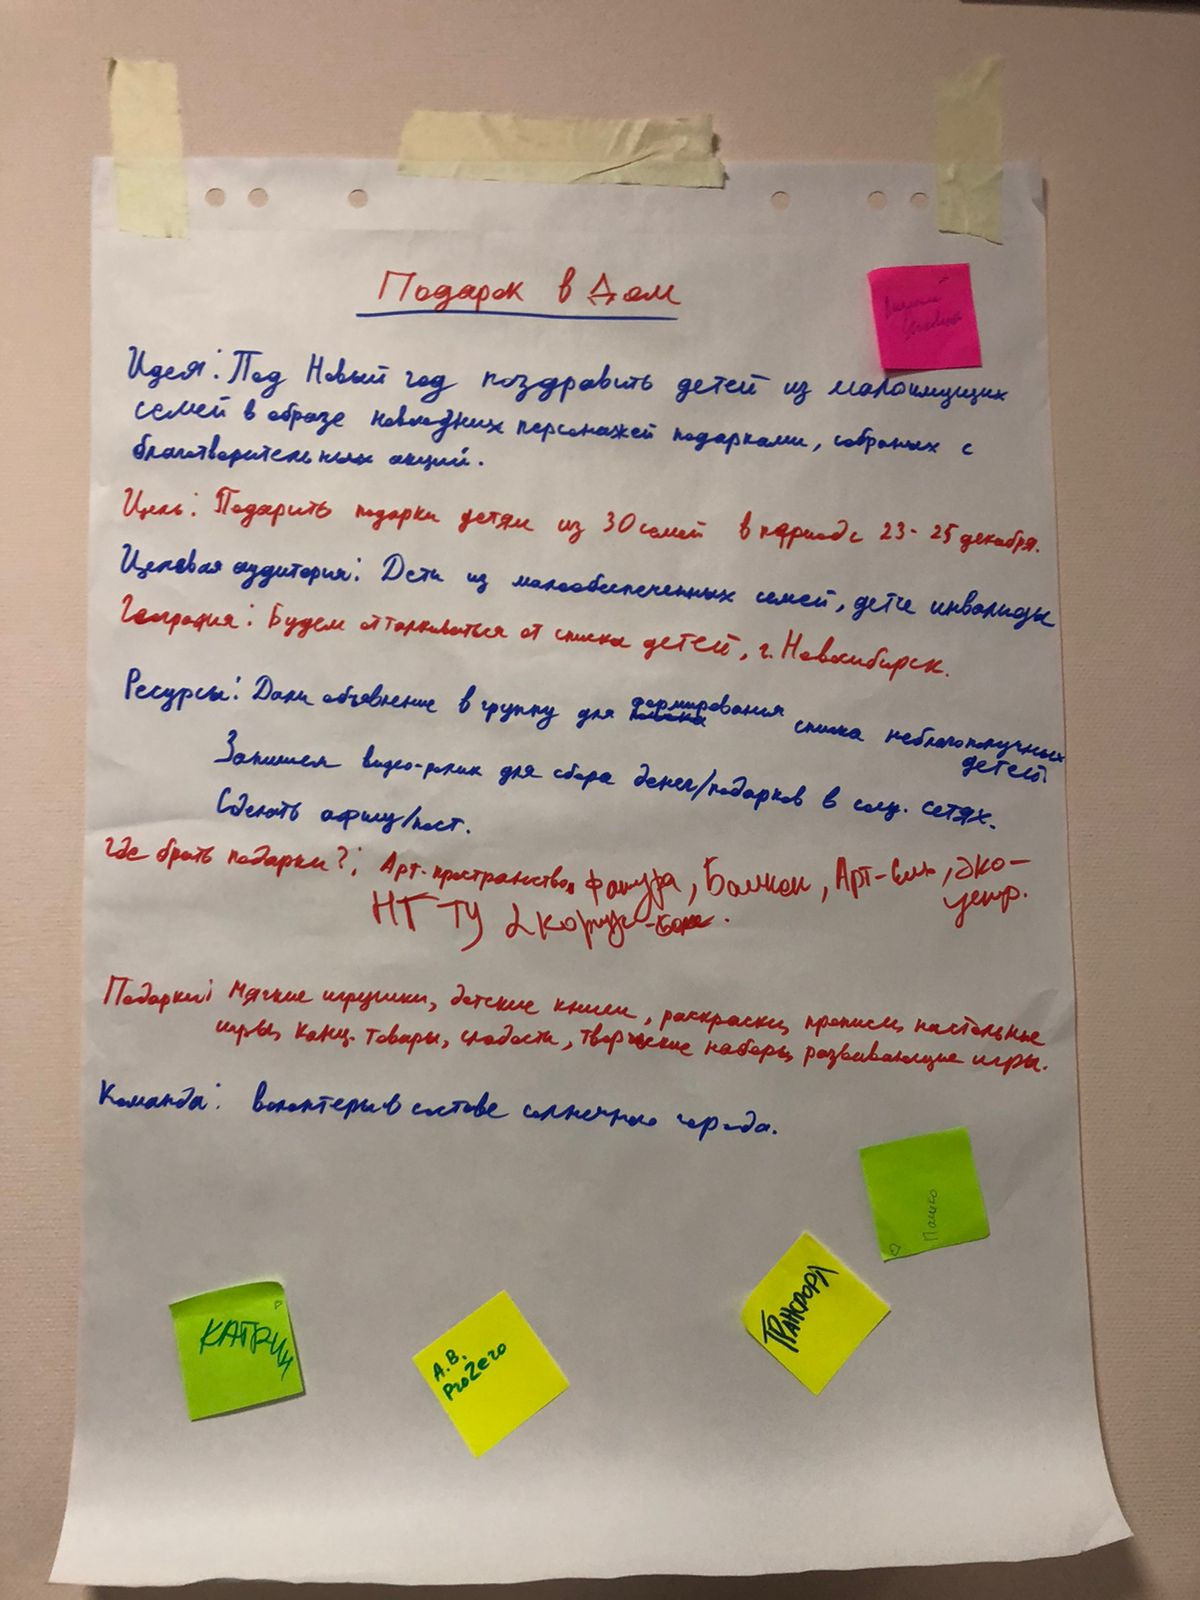 Подарок в Дом
Идея: Под Новый год поздравить детей из малоимущих
семей в образе новогодних персонажей подарками, собраных с
благотворительных акций.
Цель: Подарить подарки детям из 30 семей в периоде 23-25 декабря.
Целевая аудитория: Дети из малообеспеченных семей, дети инвалиды
География: Будем отталкиваться от списка детей, г. Новосибирск.
Ресурсы: Дали объявление в группу для формирования списка неблагополучных
детей.
Запишем видео-ролик для сбора денег/подарков в соц. сетях.
Сделать афишу/пост.
Где брать подарки?: Арт-пространство Фактура, Балкон, Арт-Ель, Эко-
центр.
НГТУ 2 корпус
Подарки: мягкие игрушки, детские книги, раскраски, прописи, настольные
игры, канц. товары, сладости, творческие наборы, развивающие игры.
Команда: волонтеры в составе солнечного города.
КАТРИН
А.В.
ProZero
ТРАНСФОРА